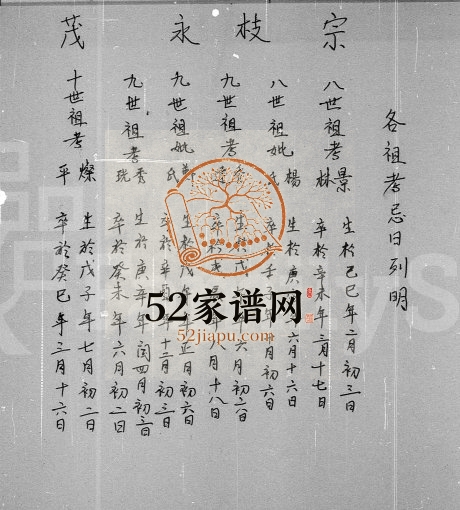 宗枝永茂
各祖考忌日列明
八世祖考景林
生於己巳年二月初三日
卒於辛未年三月十七日
八世祖妣楊氏
生於庚 年六月十六日
卒於壬子年 月初六日
九世祖考
生於戊 年六月初二日
卒於 年八月十八日
九世祖妣 氏
生於戊 年正月初六日
卒於辛酉年十二月初三日
九世祖考秀珖
生於庚 年閏四月初三日
卒於癸未年六月初二日
十世祖考燦平
生於戊子年七月初二日
卒於癸巳年三月十六日
52家谱网
52jiapu.com